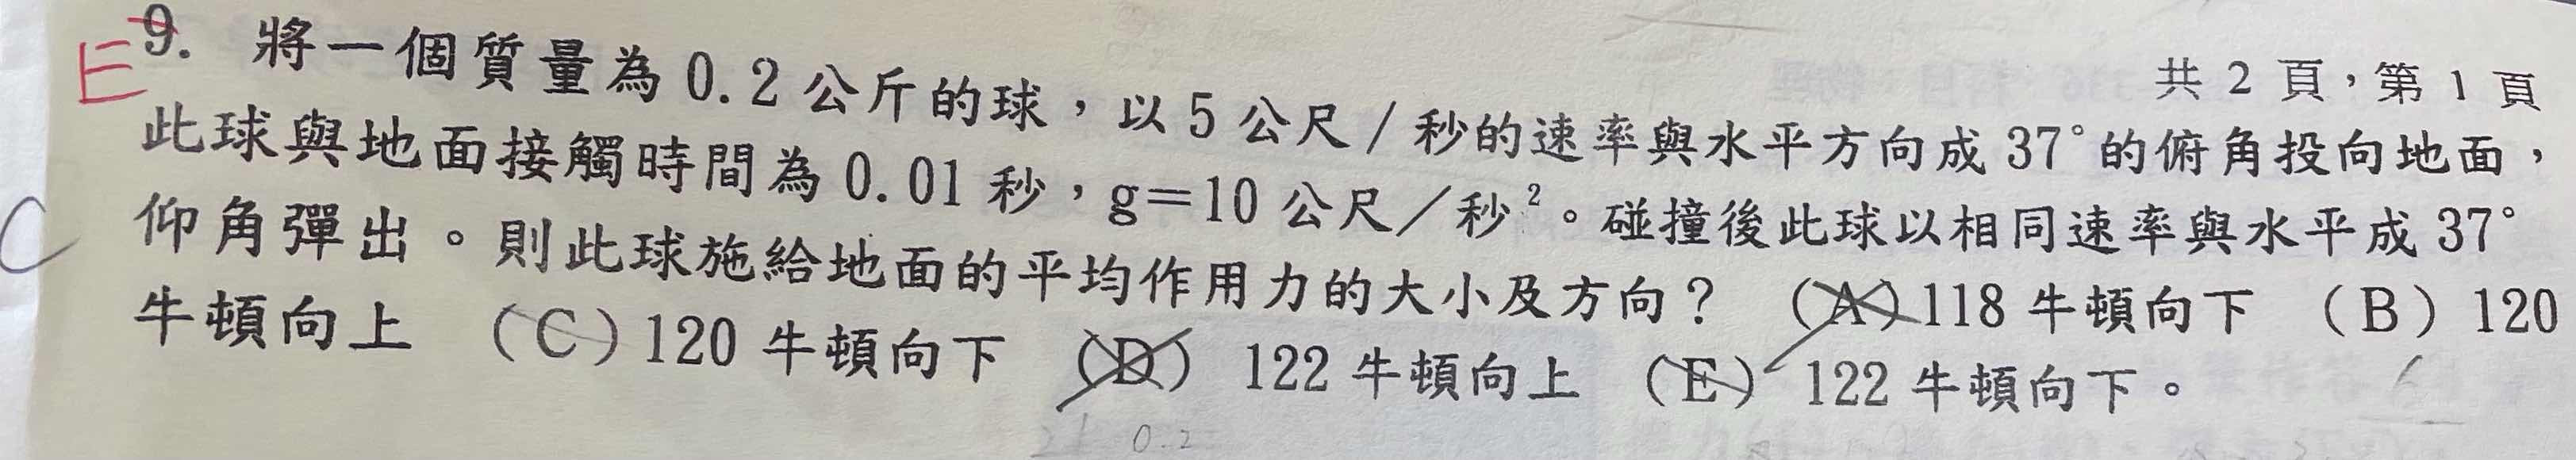 共 2 頁，第 1 頁
E 9. 將一個質量為 0.2 公斤的球，以 5 公尺／秒的速率與水平方向成 37°的俯角投向地面，
此球與地面接觸時間為 0.01 秒，g＝10 公尺／秒²。碰撞後此球以相同速率與水平成 37°
C 仰角彈出。則此球施給地面的平均作用力的大小及方向？ （A）118 牛頓向下 （B）120
牛頓向上 （C）120 牛頓向下 （D） 122 牛頓向上 （E） 122 牛頓向下。
0.2